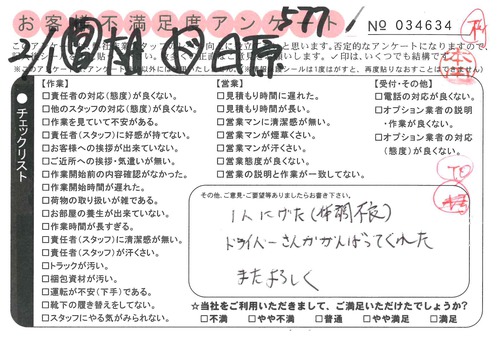 お客様不満足度アンケート
No 034634
【作業】
□責任者の対応(態度)が良くない。
□他のスタッフの対応(態度)が良くない。
□作業を見ていて不安がある。
□責任者(スタッフ)に好感が持てない。
□お客様への挨拶が出来ていない。
□ご近所への挨拶・気遣いが無い。
□作業開始前の内容確認がなかった。
□作業開始時間が遅れた。
□荷物の取り扱いが雑である。
□お部屋の養生が出来ていない。
□作業時間が長すぎる。
□責任者(スタッフ)に清潔感が無い。
□責任者(スタッフ)が汗くさい。
□トラックが汚い。
□梱包資材が汚い。
□運転が不安(下手)である。
□靴下の履き替えをしてない。
□スタッフにやる気がみられない。
●チェックリスト
【営業】
□見積もり時間に遅れた。
□見積もり時間が長い。
□営業マンに清潔感が無い。
□営業マンが煙草くさい。
□営業マンが汗くさい。
□営業態度が良くない。
□営業の説明と作業が一致してない。
【受付・その他】
□電話の対応が良くない。
□オプション業者の説明
・作業が良くない。
□オプション業者の対応
(態度)が良くない。
その他、ご意見・ご要望等ありましたらお書き下さい。
1人にげた(体調不良)
ドライバーさんががんばってくれた
またよろしく
☆当社をご利用いただきまして、ご満足いただけたでしょうか?
□不満 □やや不満 □普通 □やや満足 □満足